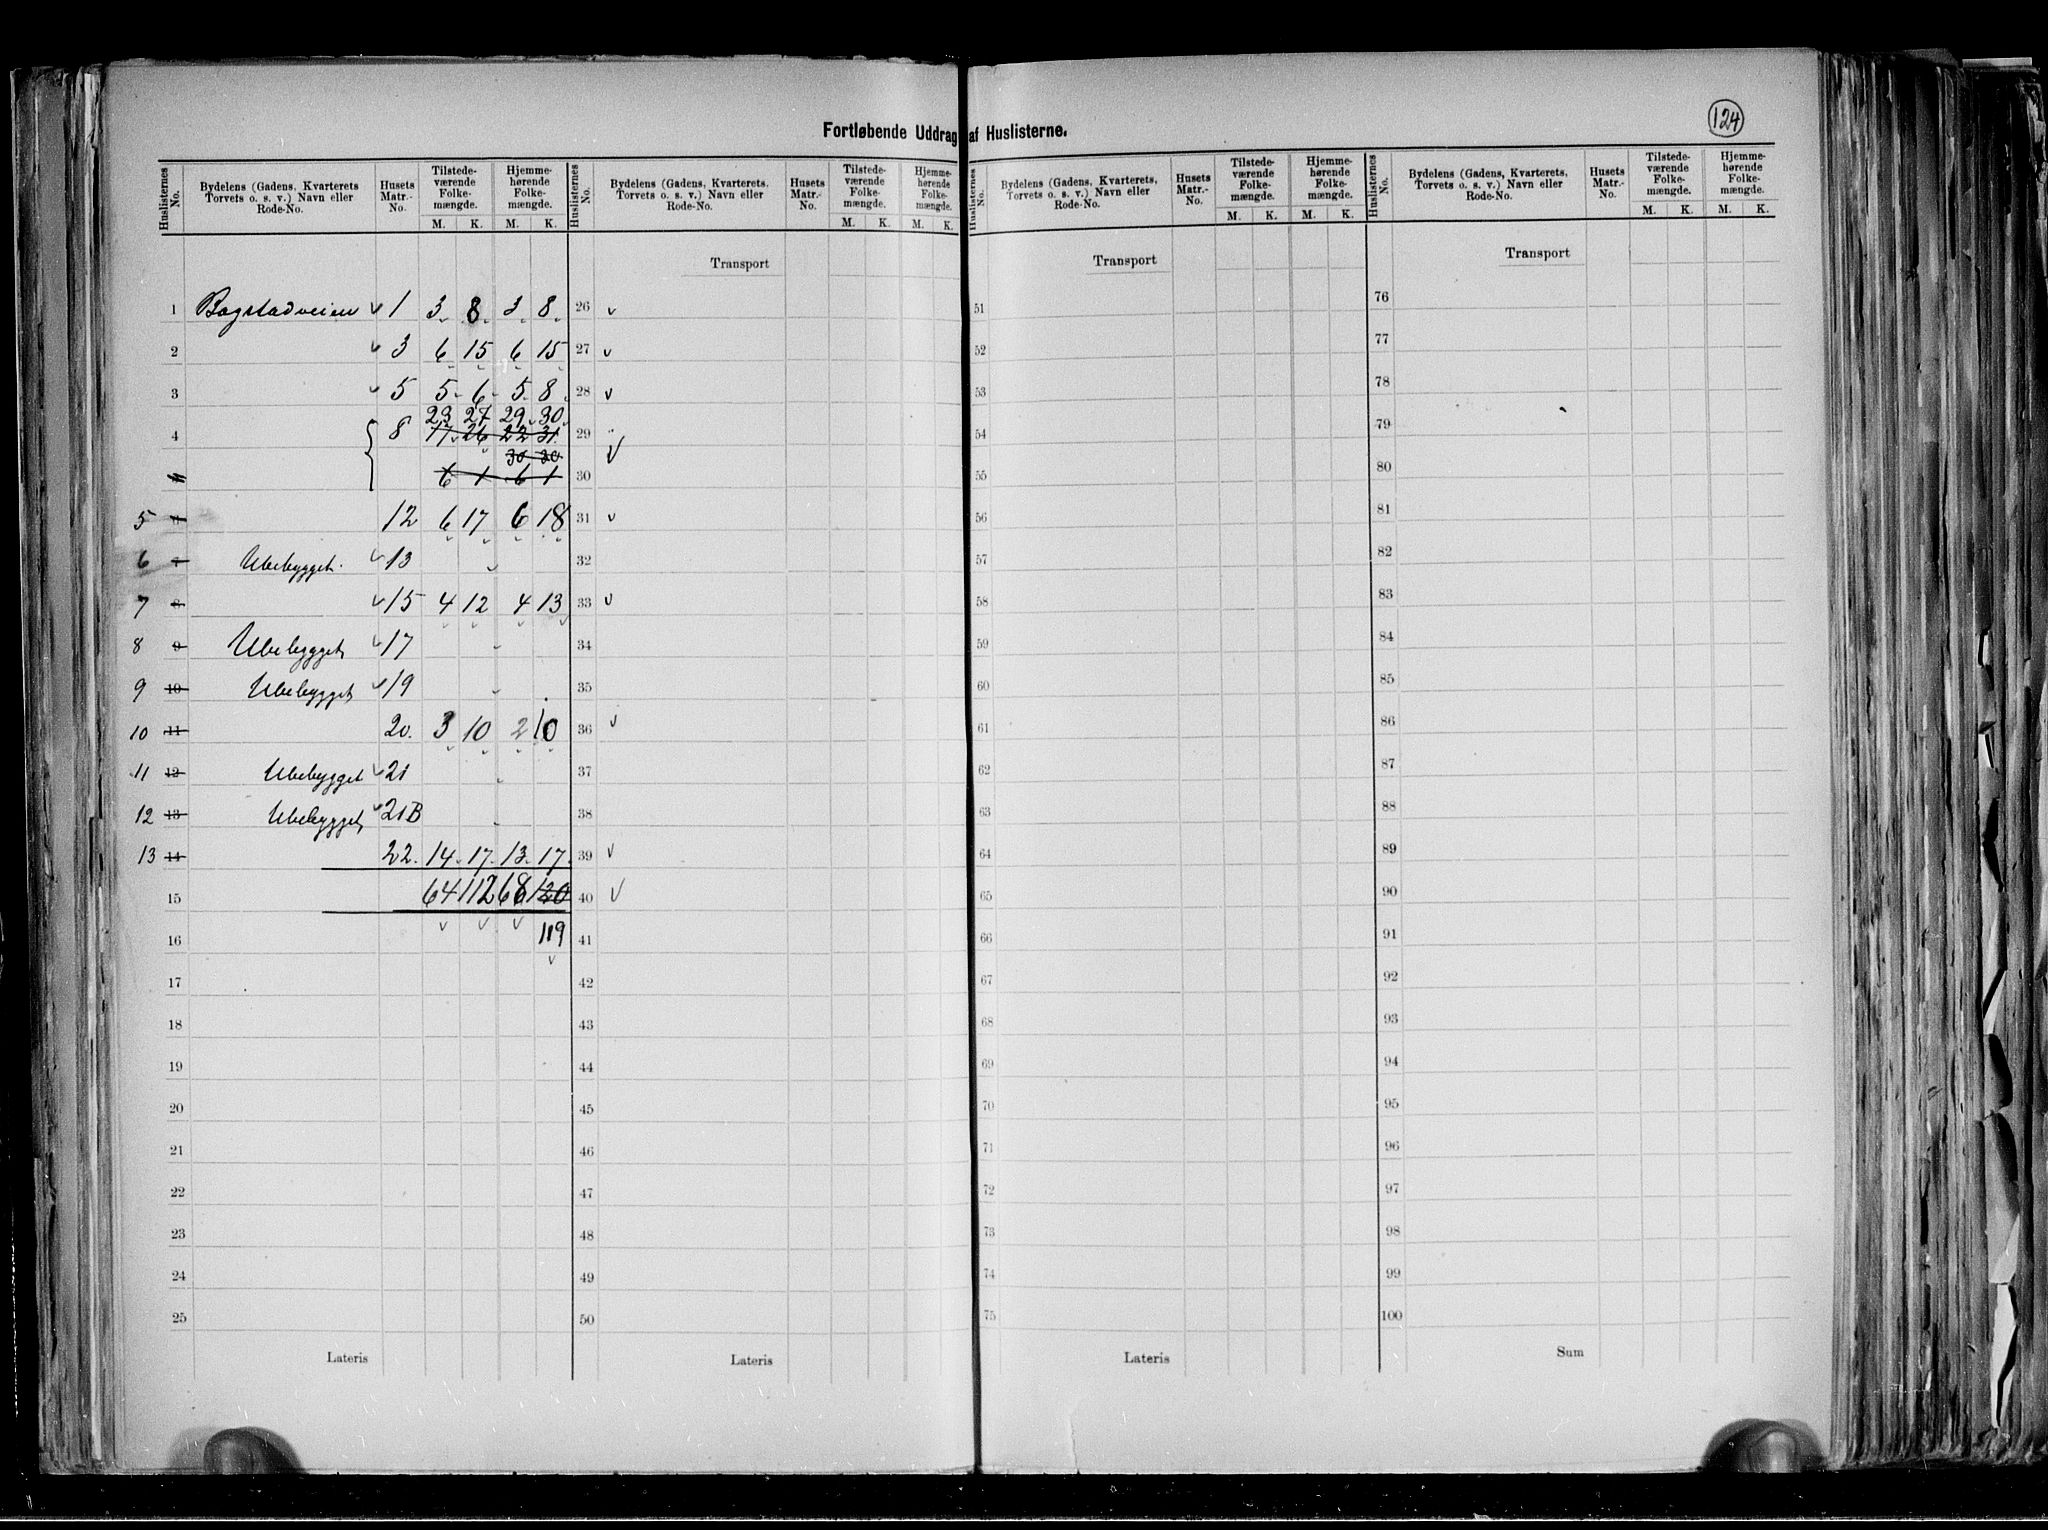 124
Fortløbende Uddrag af Huslisterne.
Huslisternes No. Bydelens (Gadens, Kvarterets, Torvets o. s. v.) Navn eller Rode-No. Husets Matr.-No. Tilstedeværende Folkemængde. M. K. Hjemmehørende Folkemængde. M. K.
Huslisternes No. Bydelens (Gadens, Kvarterets, Torvets o. s. v.) Navn eller Rode-No. Husets Matr.-No. Tilstedeværende Folkemængde. M. K. Hjemmehørende Folkemængde. M. K.
Huslisternes No. Bydelens (Gadens, Kvarterets, Torvets o. s. v.) Navn eller Rode-No. Husets Matr.-No. Tilstedeværende Folkemængde. M. K. Hjemmehørende Folkemængde. M. K.
Huslisternes No. Bydelens (Gadens, Kvarterets, Torvets o. s. v.) Navn eller Rode-No. Husets Matr.-No. Tilstedeværende Folkemængde. M. K. Hjemmehørende Folkemængde. M. K.
Transport Transport Transport
1 Bogstadveien 1 3 8 3 8 26 51 76
2 3 6 15 6 15 27 52 77
3 5 5 6 5 8 28 53 78
23 27 29 30
4 8 17 26 22 31 29 54 79
30 30
6 1 6 1 30 55 80
5 12 6 17 6 18 31 56 81
6 7 Ubebygget 13 32 57 82
7 8 15 4 12 4 13 33 58 83
8 9 Ubebygget 17 34 59 84
9 10 Ubebygget 19 35 60 85
10 11 20. 3 10 2 10 36 61 86
11 12 Ubebygget 21 37 62 87
12 13 Ubebygget 21B 38 63 88
13 14 22. 14 17 13 17 39 64 89
15 64 112 68 120 40 65 90
16 119 41 66 91
17 42 67 92
18 43 68 93
19 44 69 94
20 45 70 95
21 46 71 96
22 47 72 97
23 48 73 98
24 49 74 99
25 50 75 100
Lateris Lateris Lateris Sum